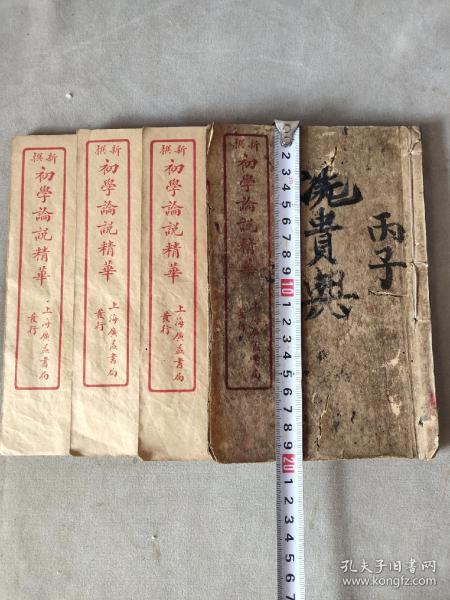 新撰
初學論說精華
上海廣益書局
發行
新撰
初學論說精華
上海廣益書局
發行
新撰
初學論說精華
上海廣益書局
發行
新撰
初學論說精華
丙子
貴興
2 3 4 5 6 7 8 9 10 1 2 3 4 5 6 7 8 9 20 1 2 3 4 5 6 7
孔夫子旧书网
www.kongfz.com